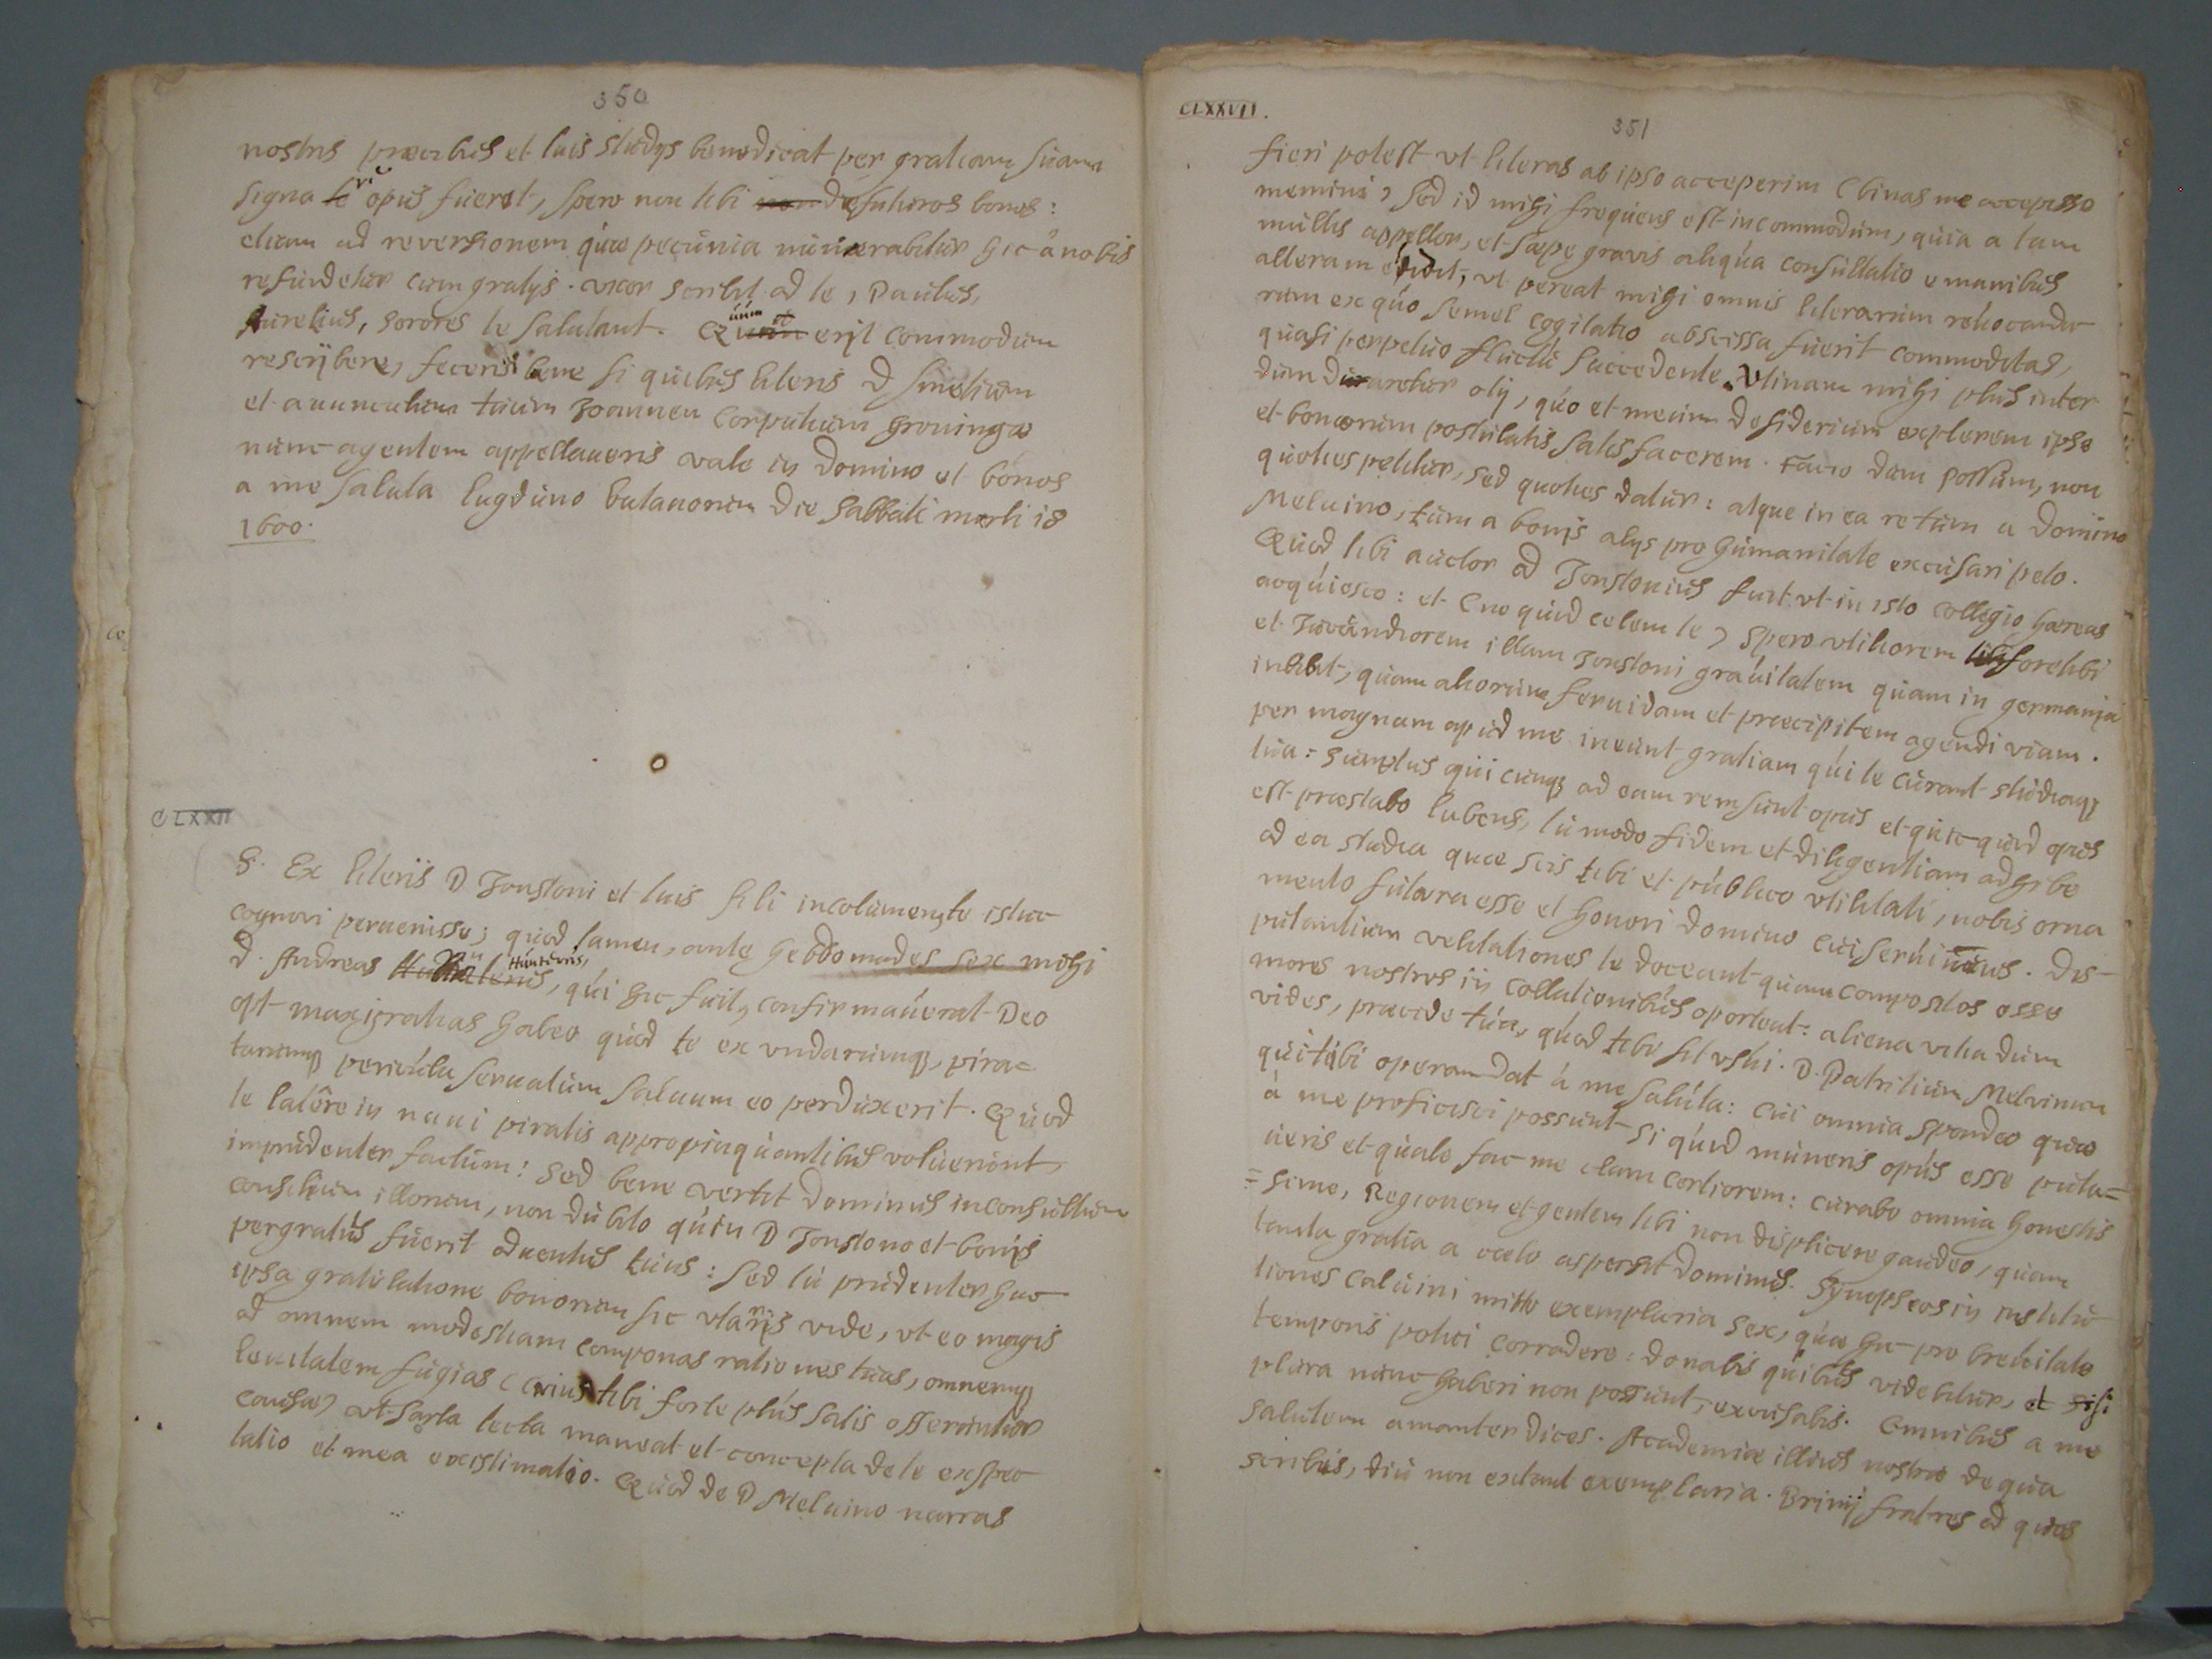 350
nostris precibus et tuis studijs benedicat per gratiam suam
signa opus fuerit, spero non tibi defuturos bonos:
etiam ad reversionem quæ pecunia numerabitur hic à nobis
refundetur cum gratijs. uxor scribit ad te, Paulus,
Aurelius, sorores te salutant. Quum erit commodum
rescribere, feceris bene si quibus literis D Smetium
et avunculum tuum Joannem Corputium groningæ
nunc agentem appellaueris vale in Domino et bonos
a me saluta Lugduno batauorum die sabbati marti 18
1600.
CLXXII
S. Ex literis D Jonstoni et tuis fili incolumem te istuc
cognovi peruenisse; quod tamen, ante hebdomades sex mihi
D. Andreas Hunterus, qui hic fuit, confirmauerat Deo
opt max gratias habeo quod te ex undarumq, pira=
tarumq periculis seruatum saluum eo perduxerit. Quod
te latêre in naui piratis appropinquantibus voluerint,
imprudenter factum: sed bene vertit Dominus inconsultum
consilium illorum, non dubito quin D Jonstono et bonis
pergratus fuerit aduentus tuus: sed tu prudenter hac
ipsa gratulatione bonorum sic utaris vide, ut eo magis
ad omnem modestiam componas rationes tuas, omnemq
leuitatem fugias (cuius tibi forte plus satis offeruntur
causæ) ut sarta tecta maneat et concepta de te expec
tatio et mea existimatio. Quod de D Meluino narras
CLXXVII.
351
fieri potest ut literas ab ipso acceperim (binas me accepisse
memini) sed id mihi frequens est incommodum, quia a tam
multis appellor, et sæpe gravis aliqua consultatio e manibus
alteram excidit, ut pereat mihi omnis literarum reuocanda
rum ex quo semel cogitatio abscissa fuerit commoditas,
quasi perpetuo fluctu succedente. Utinam mihi plus inter
dum duraretur otij, quo et meum desiderium explerem ipse
et bonorum postulatis satisfacerem. Facio dum possum, non
quoties petitur, sed quoties datur: atque in ea re tum a Domino
Meluino, tum a bonis alijs pro humanitate excusari peto.
Quod tibi auctor D Jonstonius fuit ut in isto collegio hæreas
acquiesco: et (ne quid celem te) spero utiliorem fore tibi
et jucundiorem illam Jonstoni grauitatem quam in germania
imbibit, quam aliorum feruidam et præcipitem agendi viam.
per magnam apud me ineunt gratiam qui te curant studiaq
tua: sumptus qui cumq ad eam rem sunt opus et quicquid opus
est præstabo lubens, tu modo fidem et diligentiam adhibe
ad ea studia quæ scis tibi et publico utilitati, nobis orna
mento futura esse et honori Domino cui seruimus. Dis-
putantium velitationes te doceant quam compositos esse
mores nostros in collationibus oporteat: aliena vitia dum
vides, præcide tua, quod tibi sit usui. D. Patritium Melvinum
qui tibi operam dat à me saluta: cui omnia spondeo quæ
à me proficisci possunt si quid muneris opus esse puta=
ueris et quale fac me etiam certiorem: curabo omnia honestis
=sime, Regionem et gentem tibi non displicere gaudeo, quam
tanta gratia a cœlo aspersit Dominus. Synopseos in institu
tiones Caluini mitto exemplaria sex, quæ hic pro breuitate
temporis potui corradere: donabis quibus videbitur, et sisi
plura nunc haberi non possunt, excusabis. Omnibus a me
salutem amanter dices. Academiæ illius nostræ de qua
scribis, diu non extant exemplaria. Brinij fratres ad quos